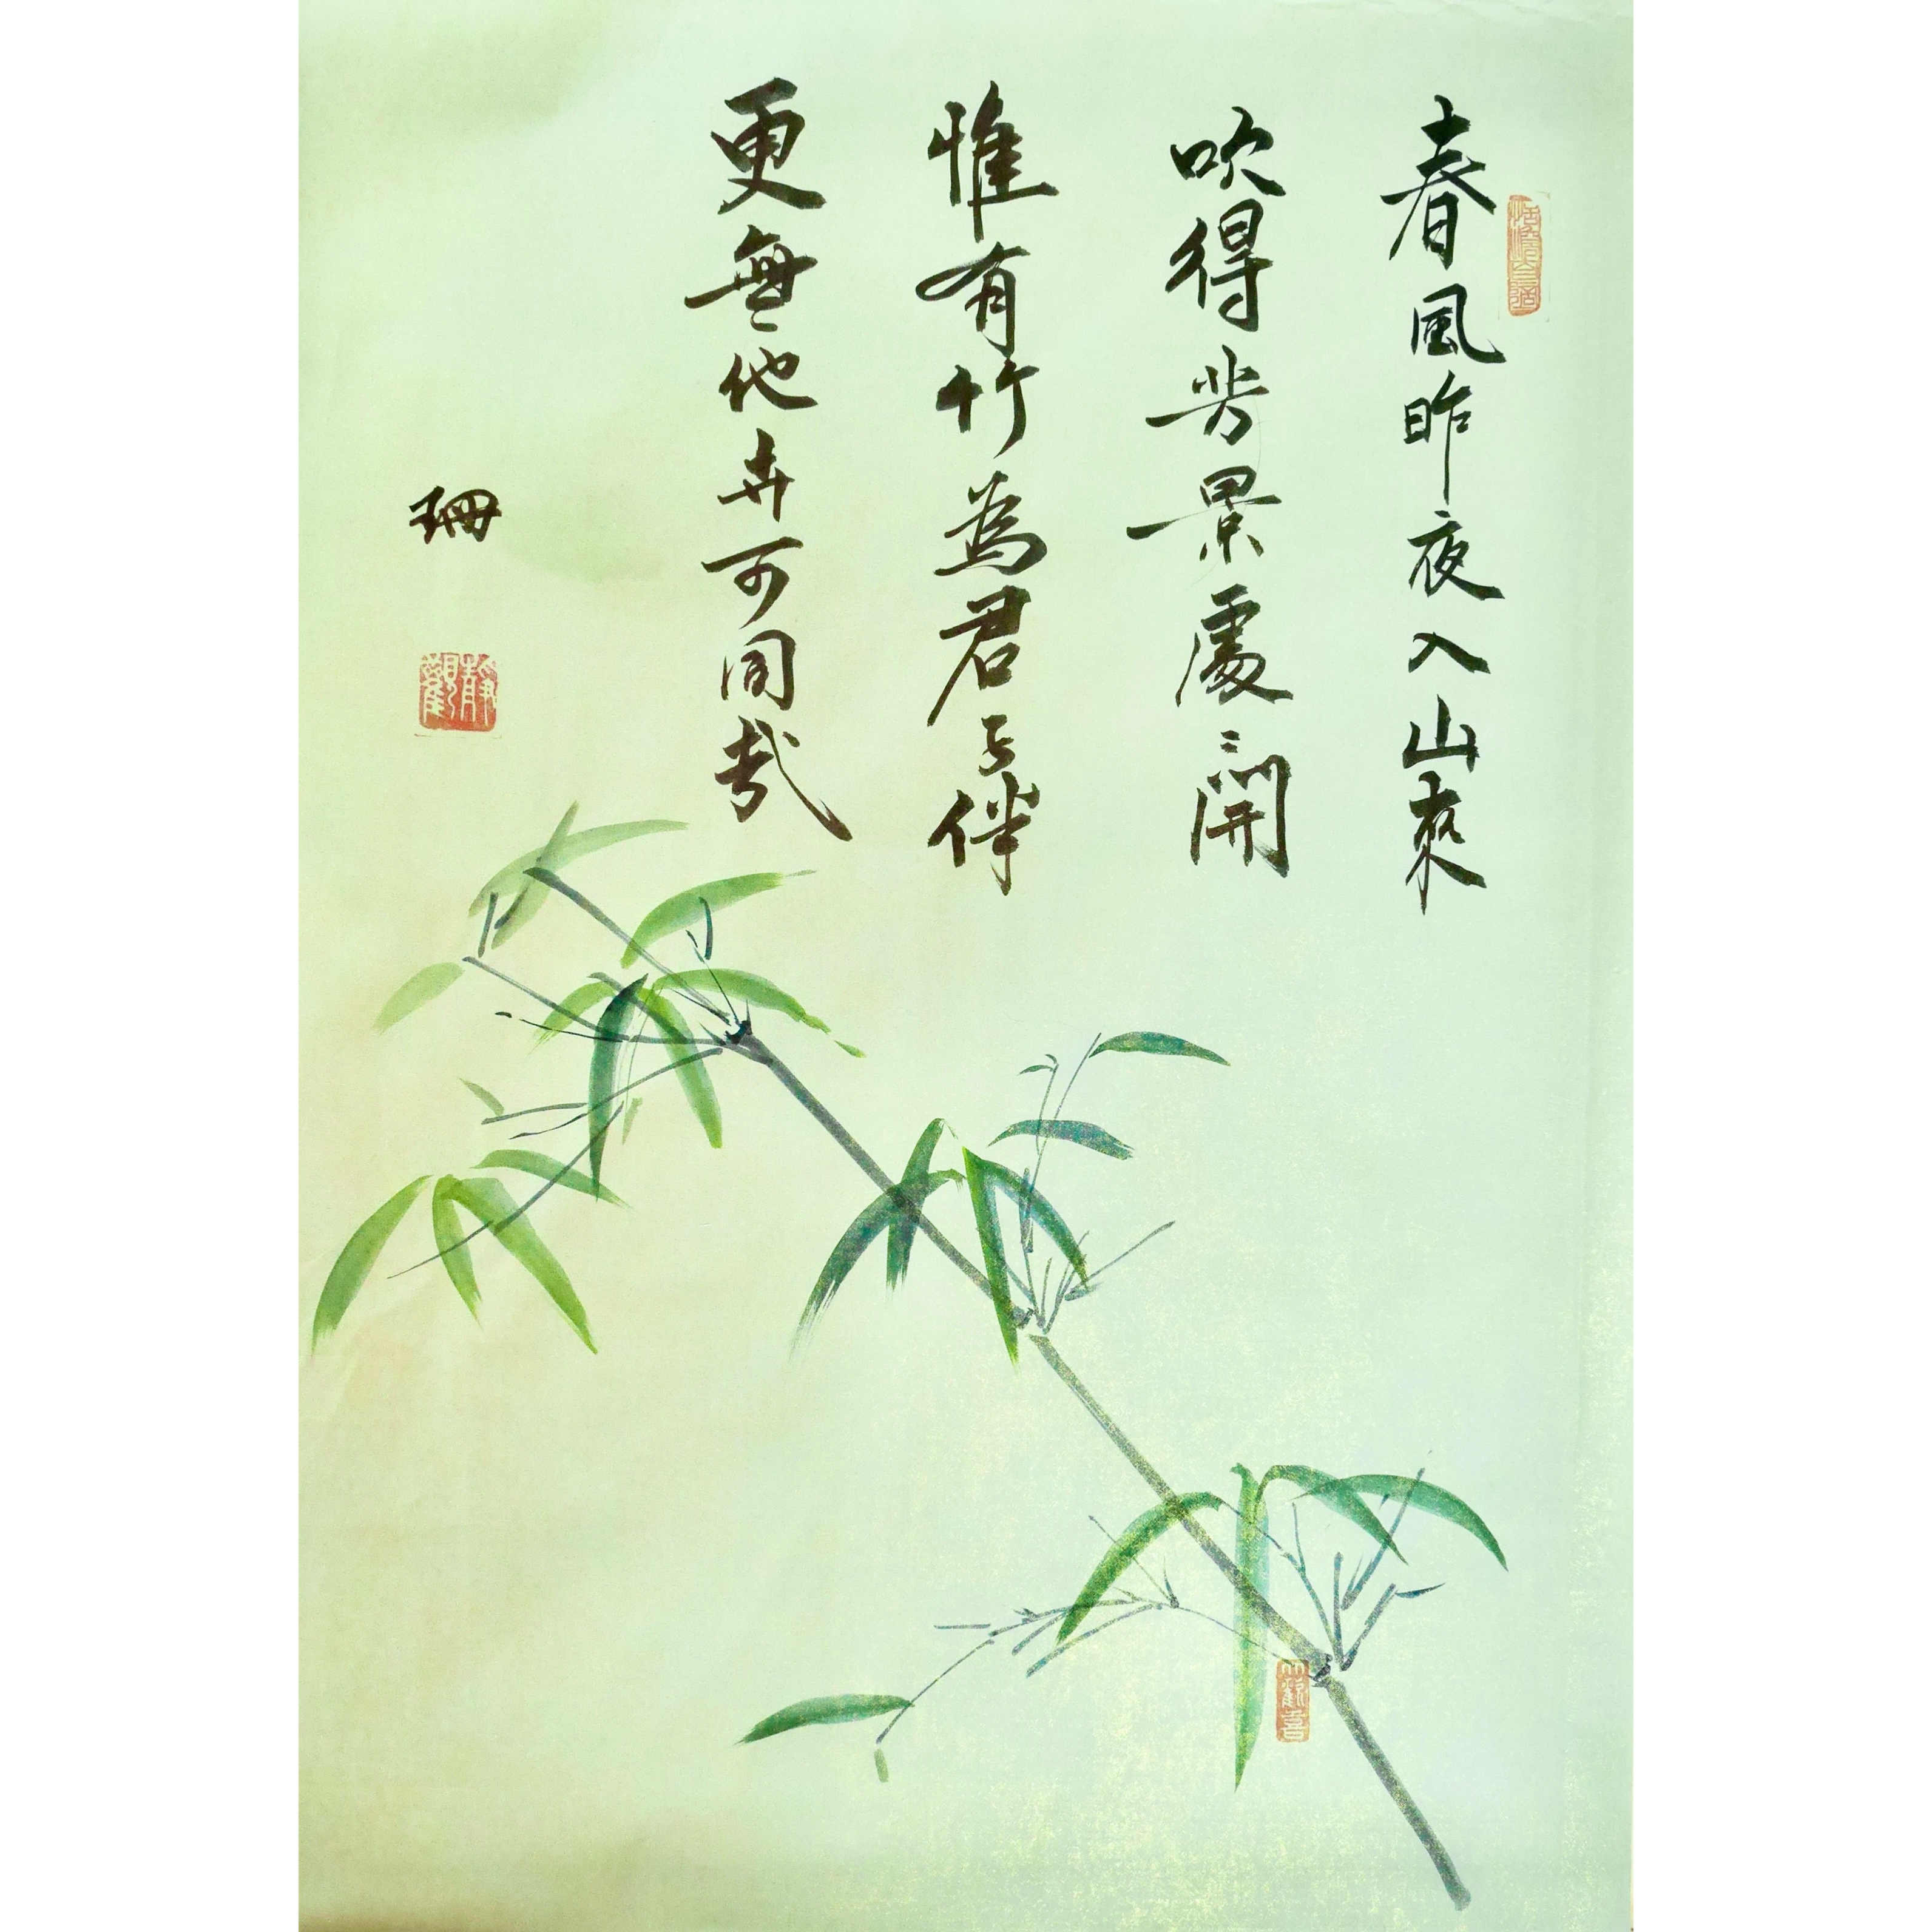 春風昨夜入山來
吹得芳景處々開
惟有竹為君子伴
更無他卉可同栽
珊
靜觀